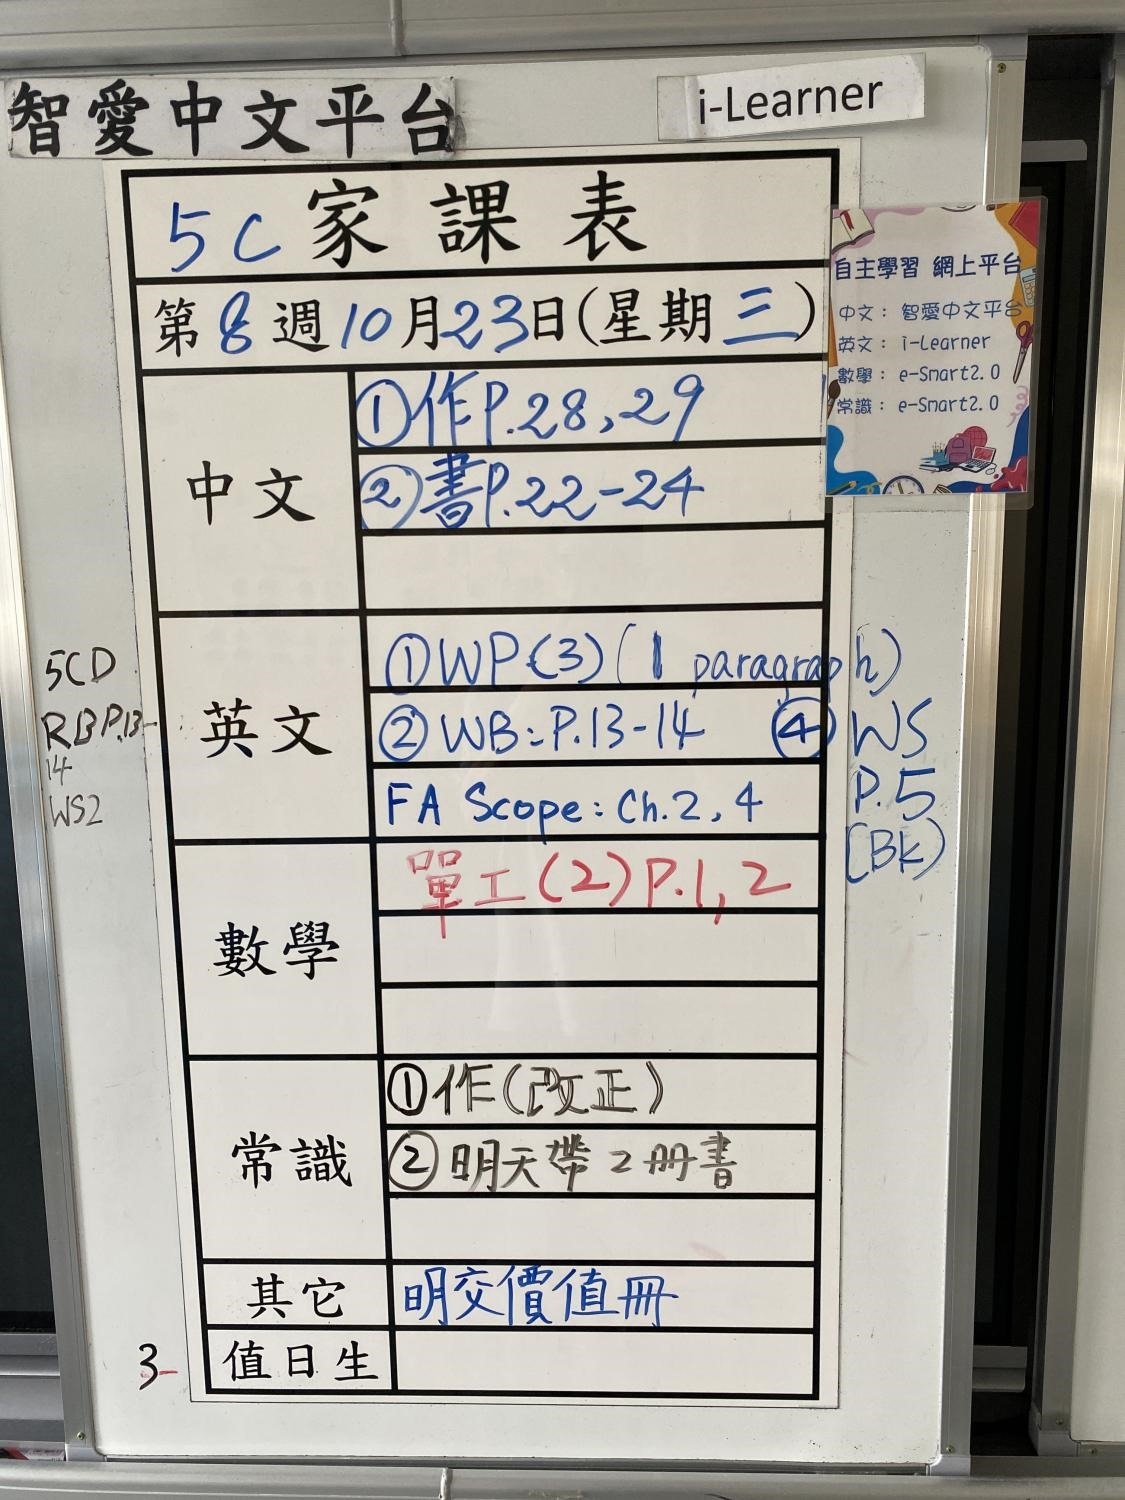 智愛中文平台
i-Learner
5C 家課表
第8週10月23日(星期三)
自主學習 網上平台
中文：智愛中文平台
英文：i-Learner
數學：e-Smart2.0
常識：e-Smart2.0
中文
①作P.28,29
②書P.22-24
英文
①WP(3)(1 paragraph)
②WB:P.13-14
④WS
P.5
(Bk)
FA Scope: Ch.2,4
5CD
RB P.13-
14
WS2
數學
單工(2)P.1,2
常識
①作(改正)
②明天帶2冊書
其它
明交價值冊
值日生
3